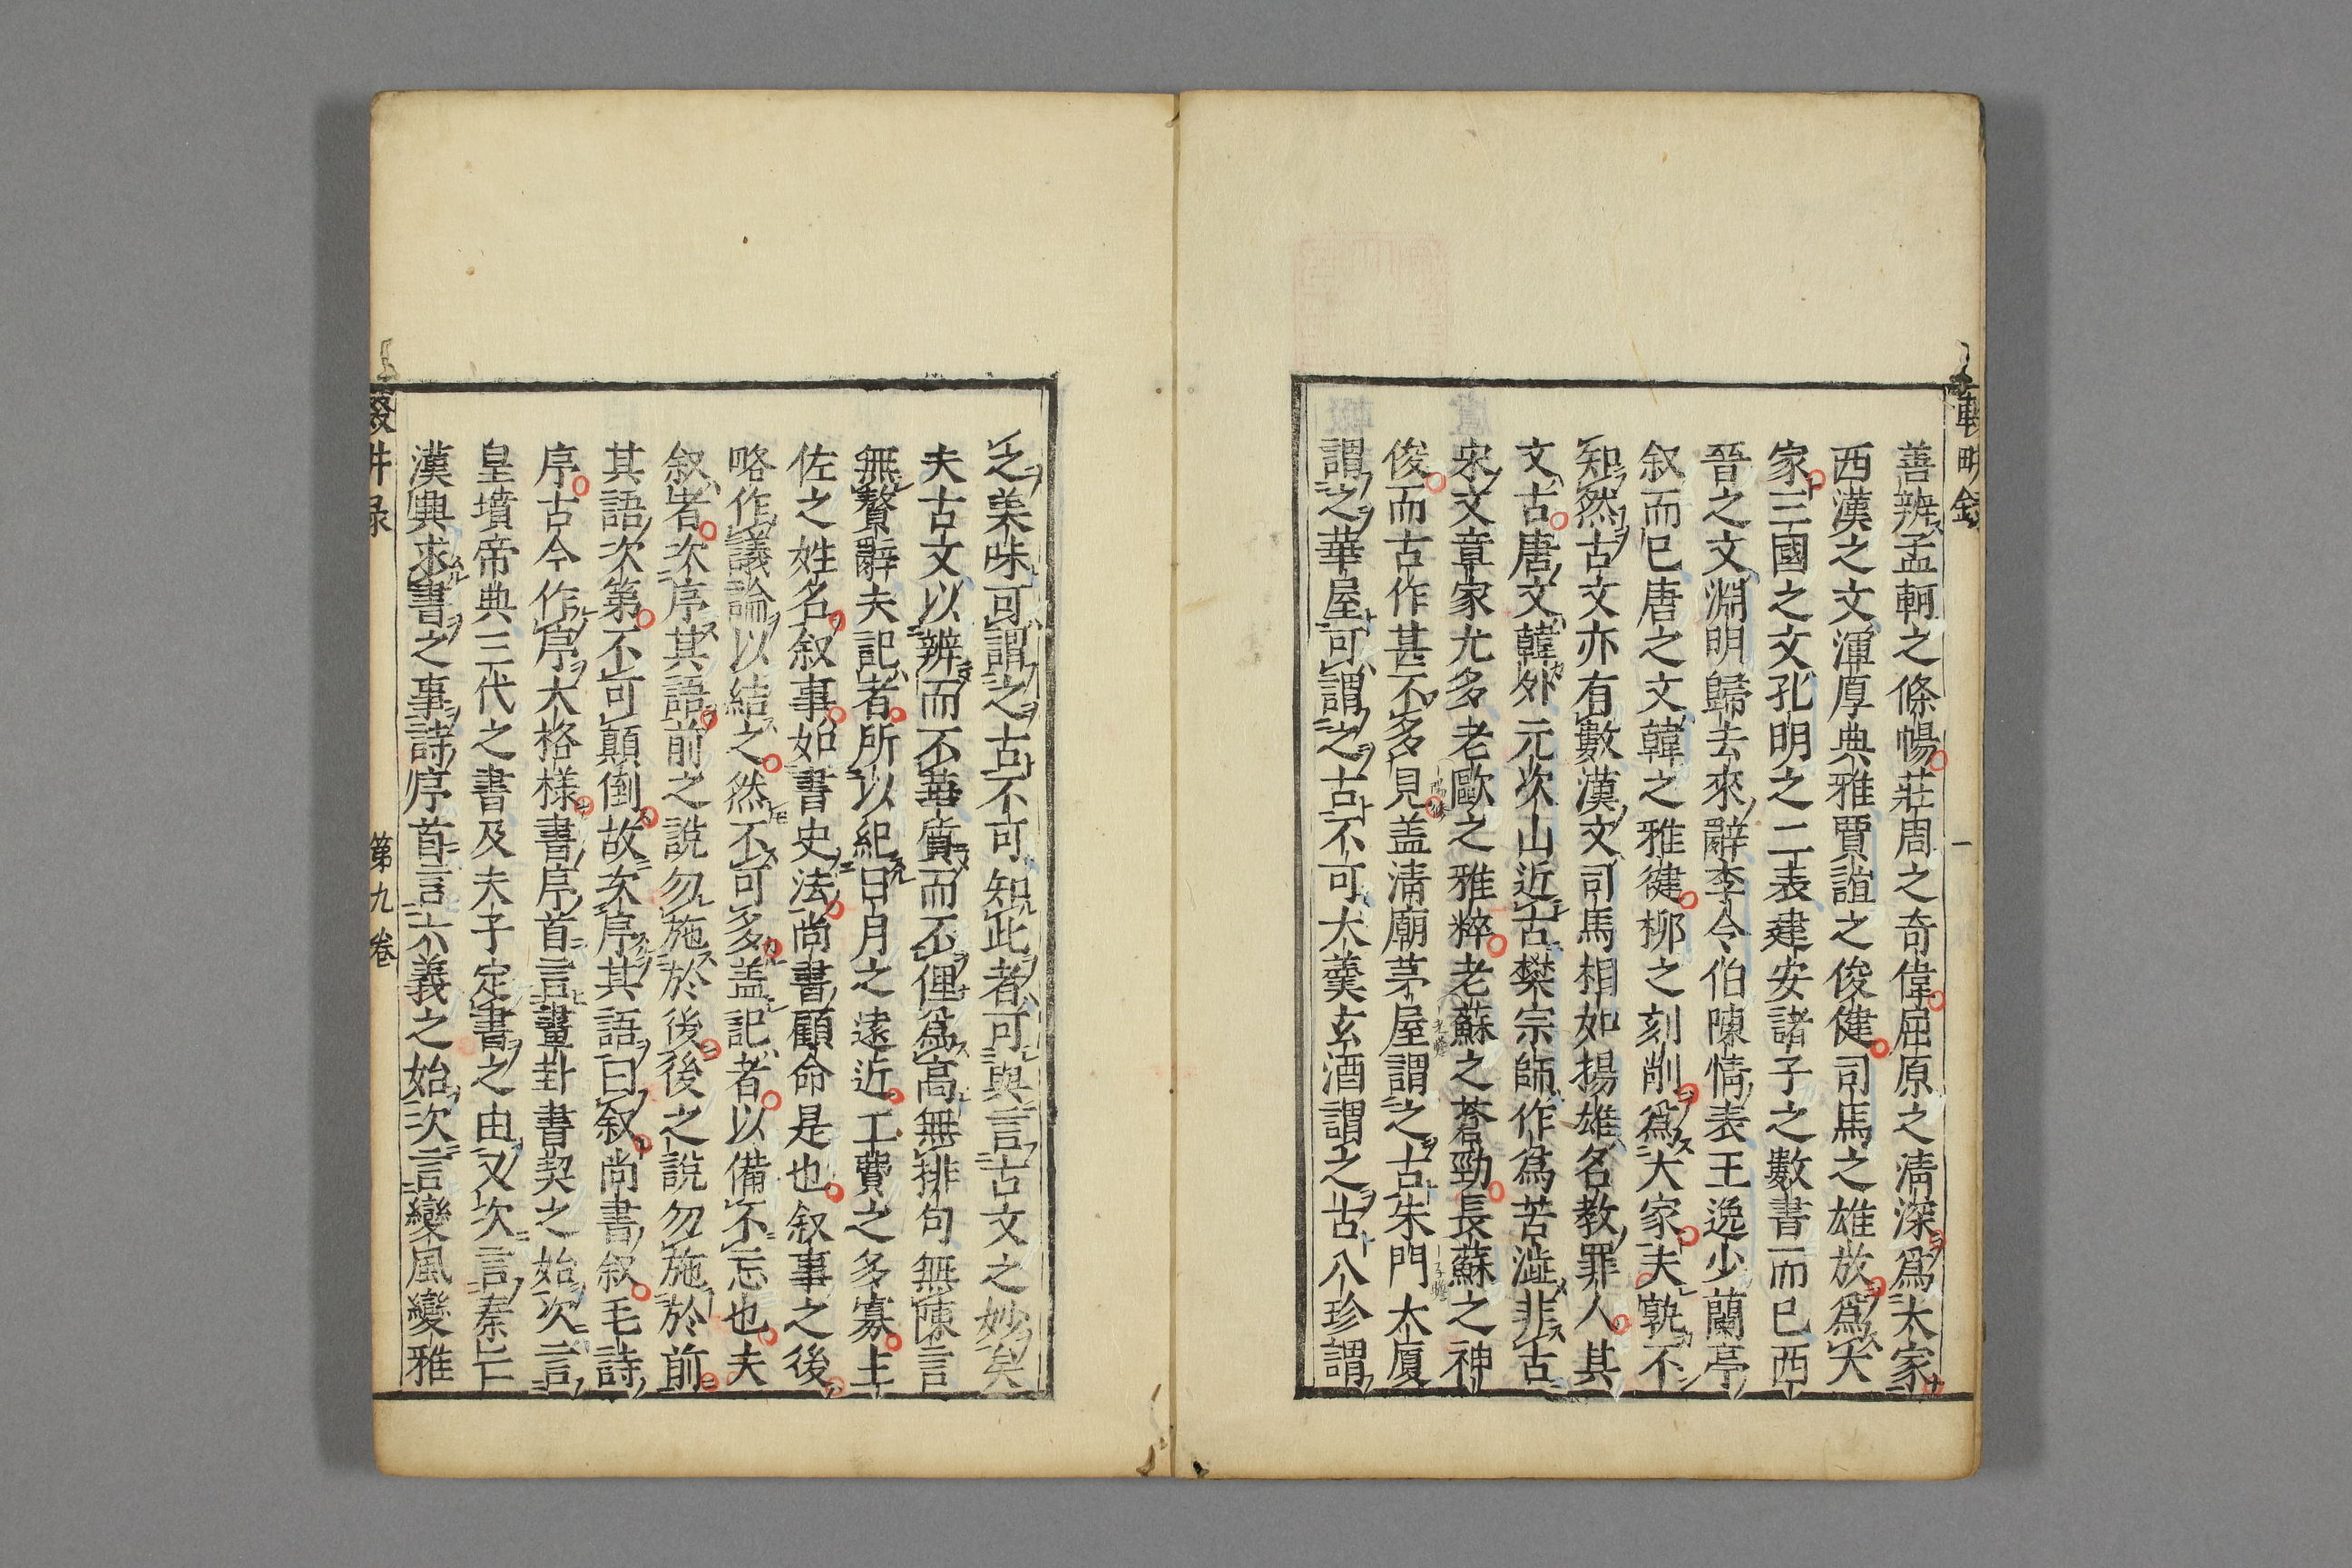 善辨孟軻之條暢莊周之奇偉屈原之清深爲大家
西漢之文渾厚典雅賈誼之俊健司馬之雄放爲大
家三國之文孔明之二表建安諸子之數書而已西
晉之文淵明歸去來辭李令伯陳情表王逸少蘭亭
叙而已唐之文韓之雅健柳之刻削爲大家夫孰不
知然古文亦有數漢文司馬相如揚雄名教罪人其
文古唐文韓外元次山近古樊宗師作爲苦澁非古
宋文章家尤多老歐之雅粹老蘇之蒼勁長蘇之神
俊而古作甚不多見盖清廟茅屋謂之古朱門大廈
謂之華屋可謂之古不可大羹玄酒謂之古八珍謂
之美味可謂之古不可知此者可與言古文之妙矣
夫古文以辨而不華質而不俚爲高無排句無陳言
無贅辭夫記者所以紀日月之遠近工費之多寡主
佐之姓名叙事如書史法尚書顧命是也叙事之後
略作議論以結之然不可多盖記者以備不忘也夫
叙者次序其語前之說勿施於後後之說勿施於前
其語次第不可顛倒故次序其語曰叙尚書叙毛詩
序古今作序大格樣書序首言畫卦書契之始次言
皇墳帝典三代之書及夫子定書之由又次言秦亡
漢興求書之事詩序首言六義之始次言變風變雅
第九卷